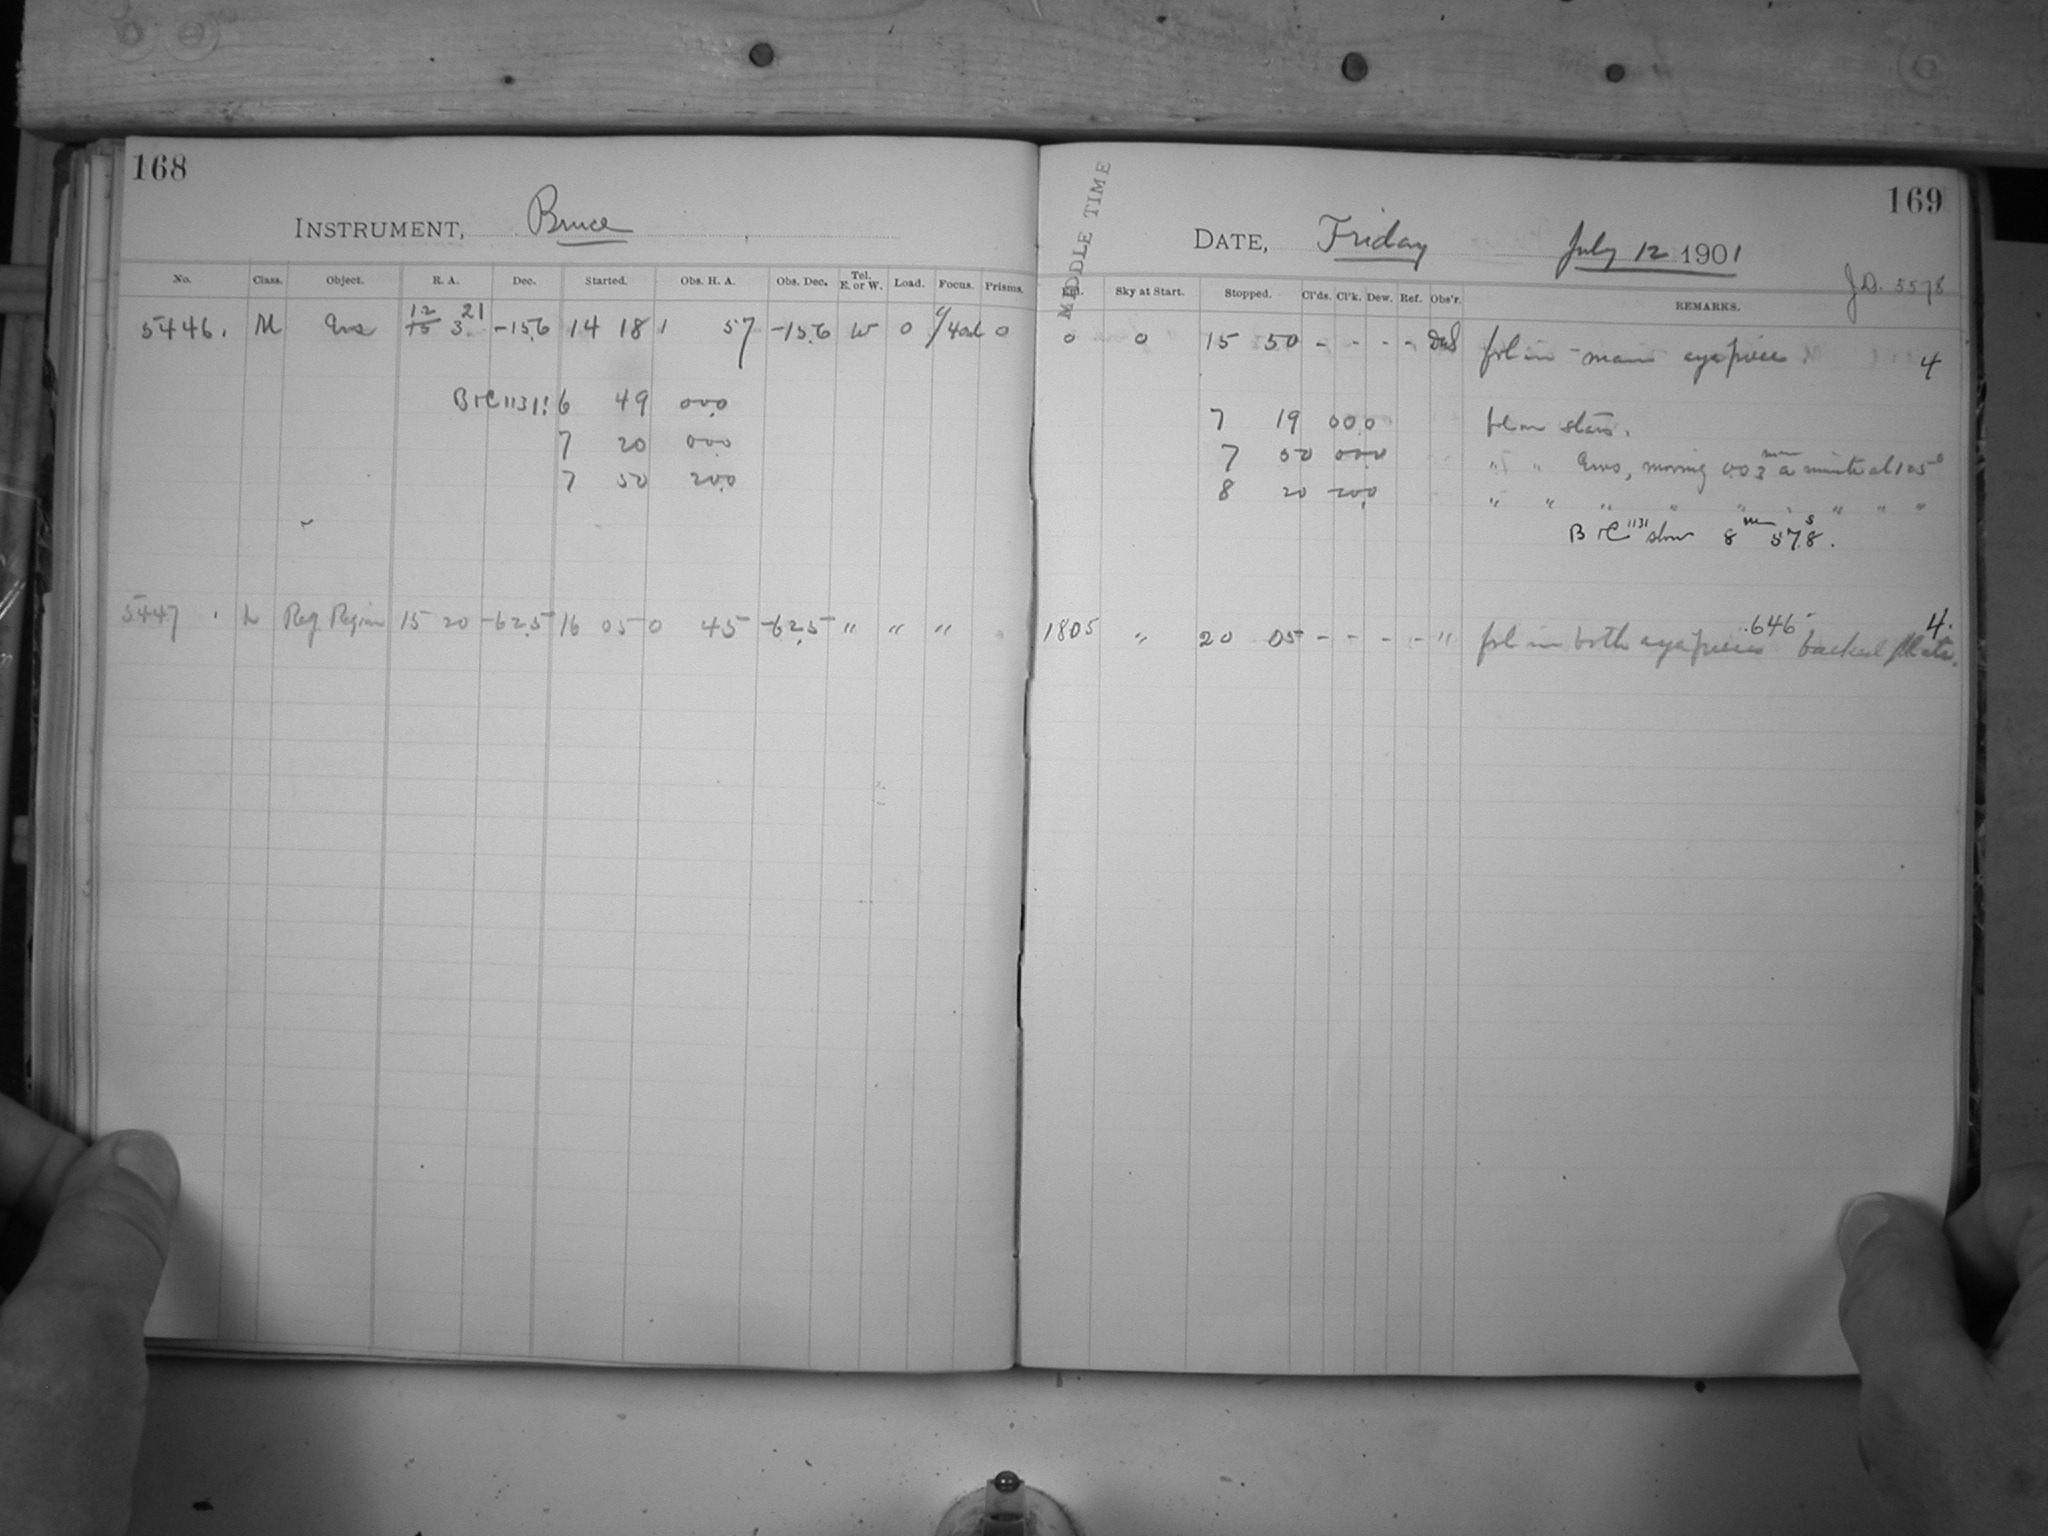 168
INSTRUMENT, Bruce
No. Class. Object. R. A. Dec. Started. Obs. H. A. Obs. Dec. Tel. E. or W. Load. Focus. Prisms.
12 21
5446. M Eros 15 3 -15.6 14 18 1 57 -15.6 W 0 0
B & C 1131: 6 49 00.0
7 20 00.0
7 50 20.0
5447 . L Reg Region 15 20 -62.5 16 05 0 45 -62.5 " " "
169
MIDDLE TIME
DATE, Friday July 12 1901
J.D. 5578
Sky at Start. Stopped. Cl'ds. Cl'k. Dew. Ref. Obs'r. REMARKS.
0 0 15 50 - - - - fol in main eyepiece 4
7 19 00.0 fol on stars.
7 50 00.0 " " Eros, moving 0.03 a minute at 125°
8 20 20.0 " " " " " " " " "
B & C 1131 slow 8m 57.8s.
1805 " 20 05 - - - - " fol in both eyepieces .646 backed plate. 4.